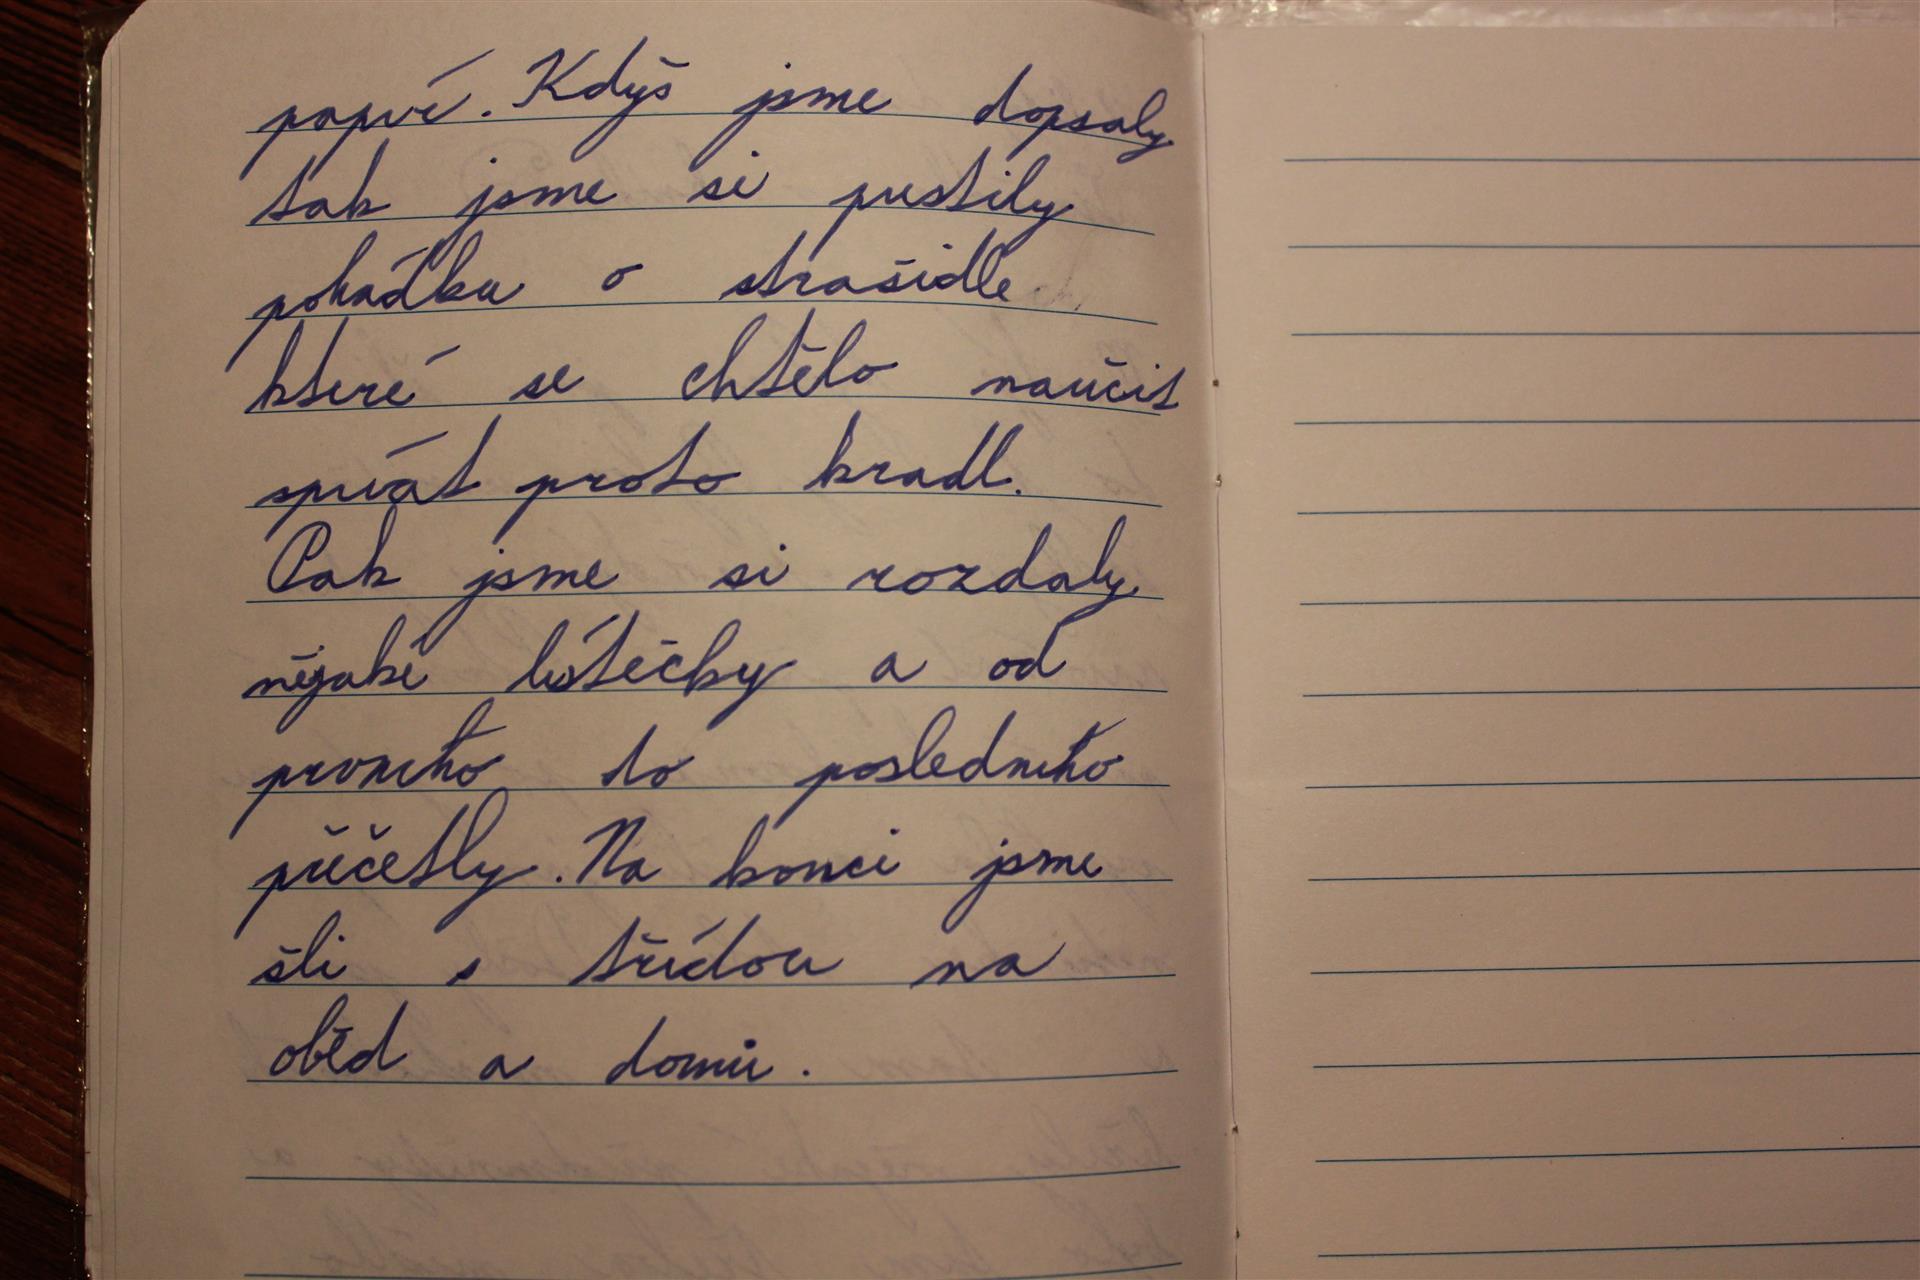 popvé. Kdyš jsme dopsaly
tak jsme si pustily
pohádku o strašidle
které se chtělo naučit
spívát proto kradl.
Pak jsme si rozdaly
nějaké lístečky a od
prvního do posledního
přečetly. Na konci jsme
šli s třídou na
oběd a domů.